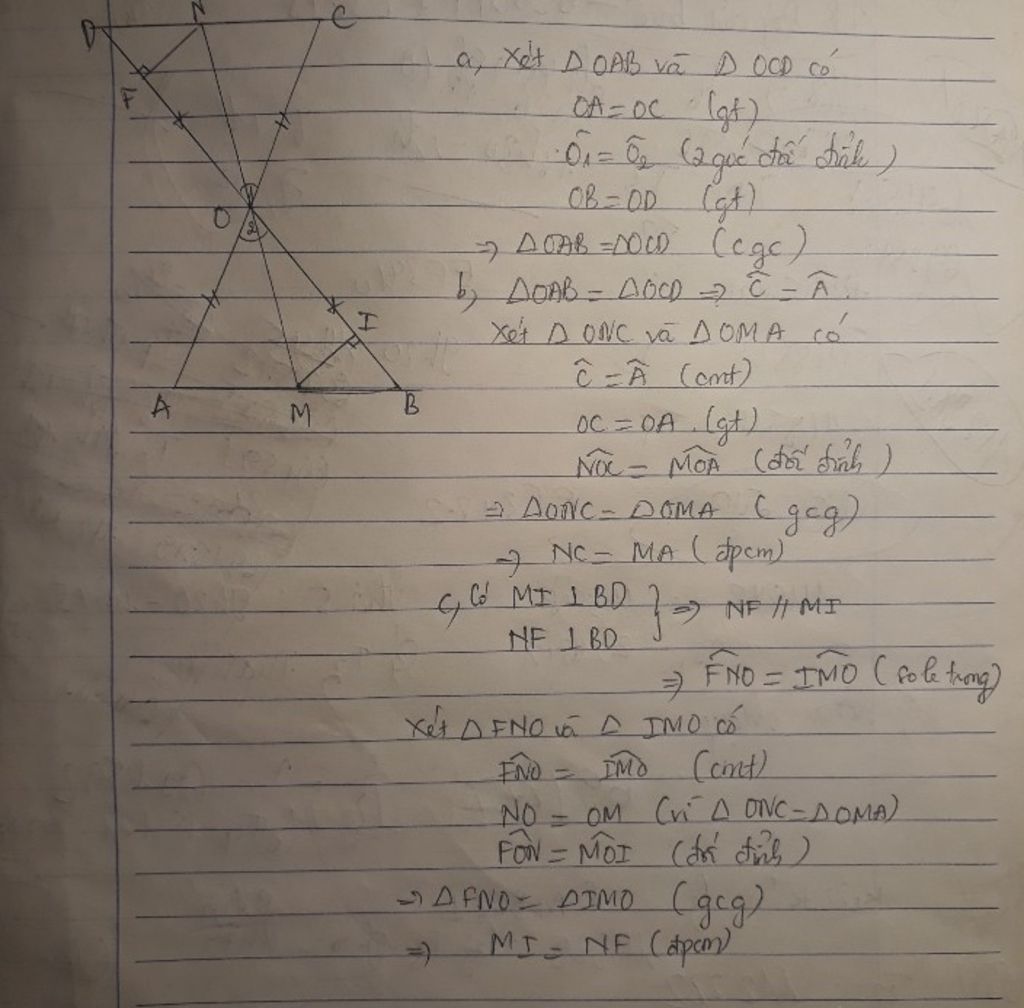 D N C
F
O
1
2
I
A M B
a, Xét Δ OAB và Δ OCD có
OA = OC (gt)
Ô₁ = Ô₂ (2 góc đối đỉnh)
OB = OD (gt)
⇒ ΔOAB = ΔOCD (cgc)
b, ΔOAB = ΔOCD ⇒ Ĉ = Â.
Xét Δ ONC và Δ OMA có
Ĉ = Â (cmt)
OC = OA . (gt)
\widehat{NOC} = \widehat{MOA} (đối đỉnh)
⇒ ΔONC = ΔOMA (gcg)
⇒ NC = MA (đpcm)
c, Có MI ⊥ BD } ⇒ NF // MI
NF ⊥ BD
⇒ \widehat{FNO} = \widehat{IMO} (so le trong)
Xét Δ FNO và Δ IMO có
\widehat{FNO} = \widehat{IMO} (cmt)
NO = OM (vì Δ ONC = ΔOMA)
\widehat{FON} = \widehat{MOI} (đối đỉnh)
⇒ Δ FNO = ΔIMO (gcg)
⇒ MI = NF (đpcm)